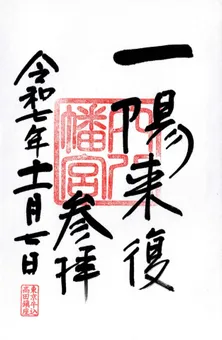 一陽来復
穴八幡宮
参拝
令和七年十一月七日
東京牛込
高田鎮座